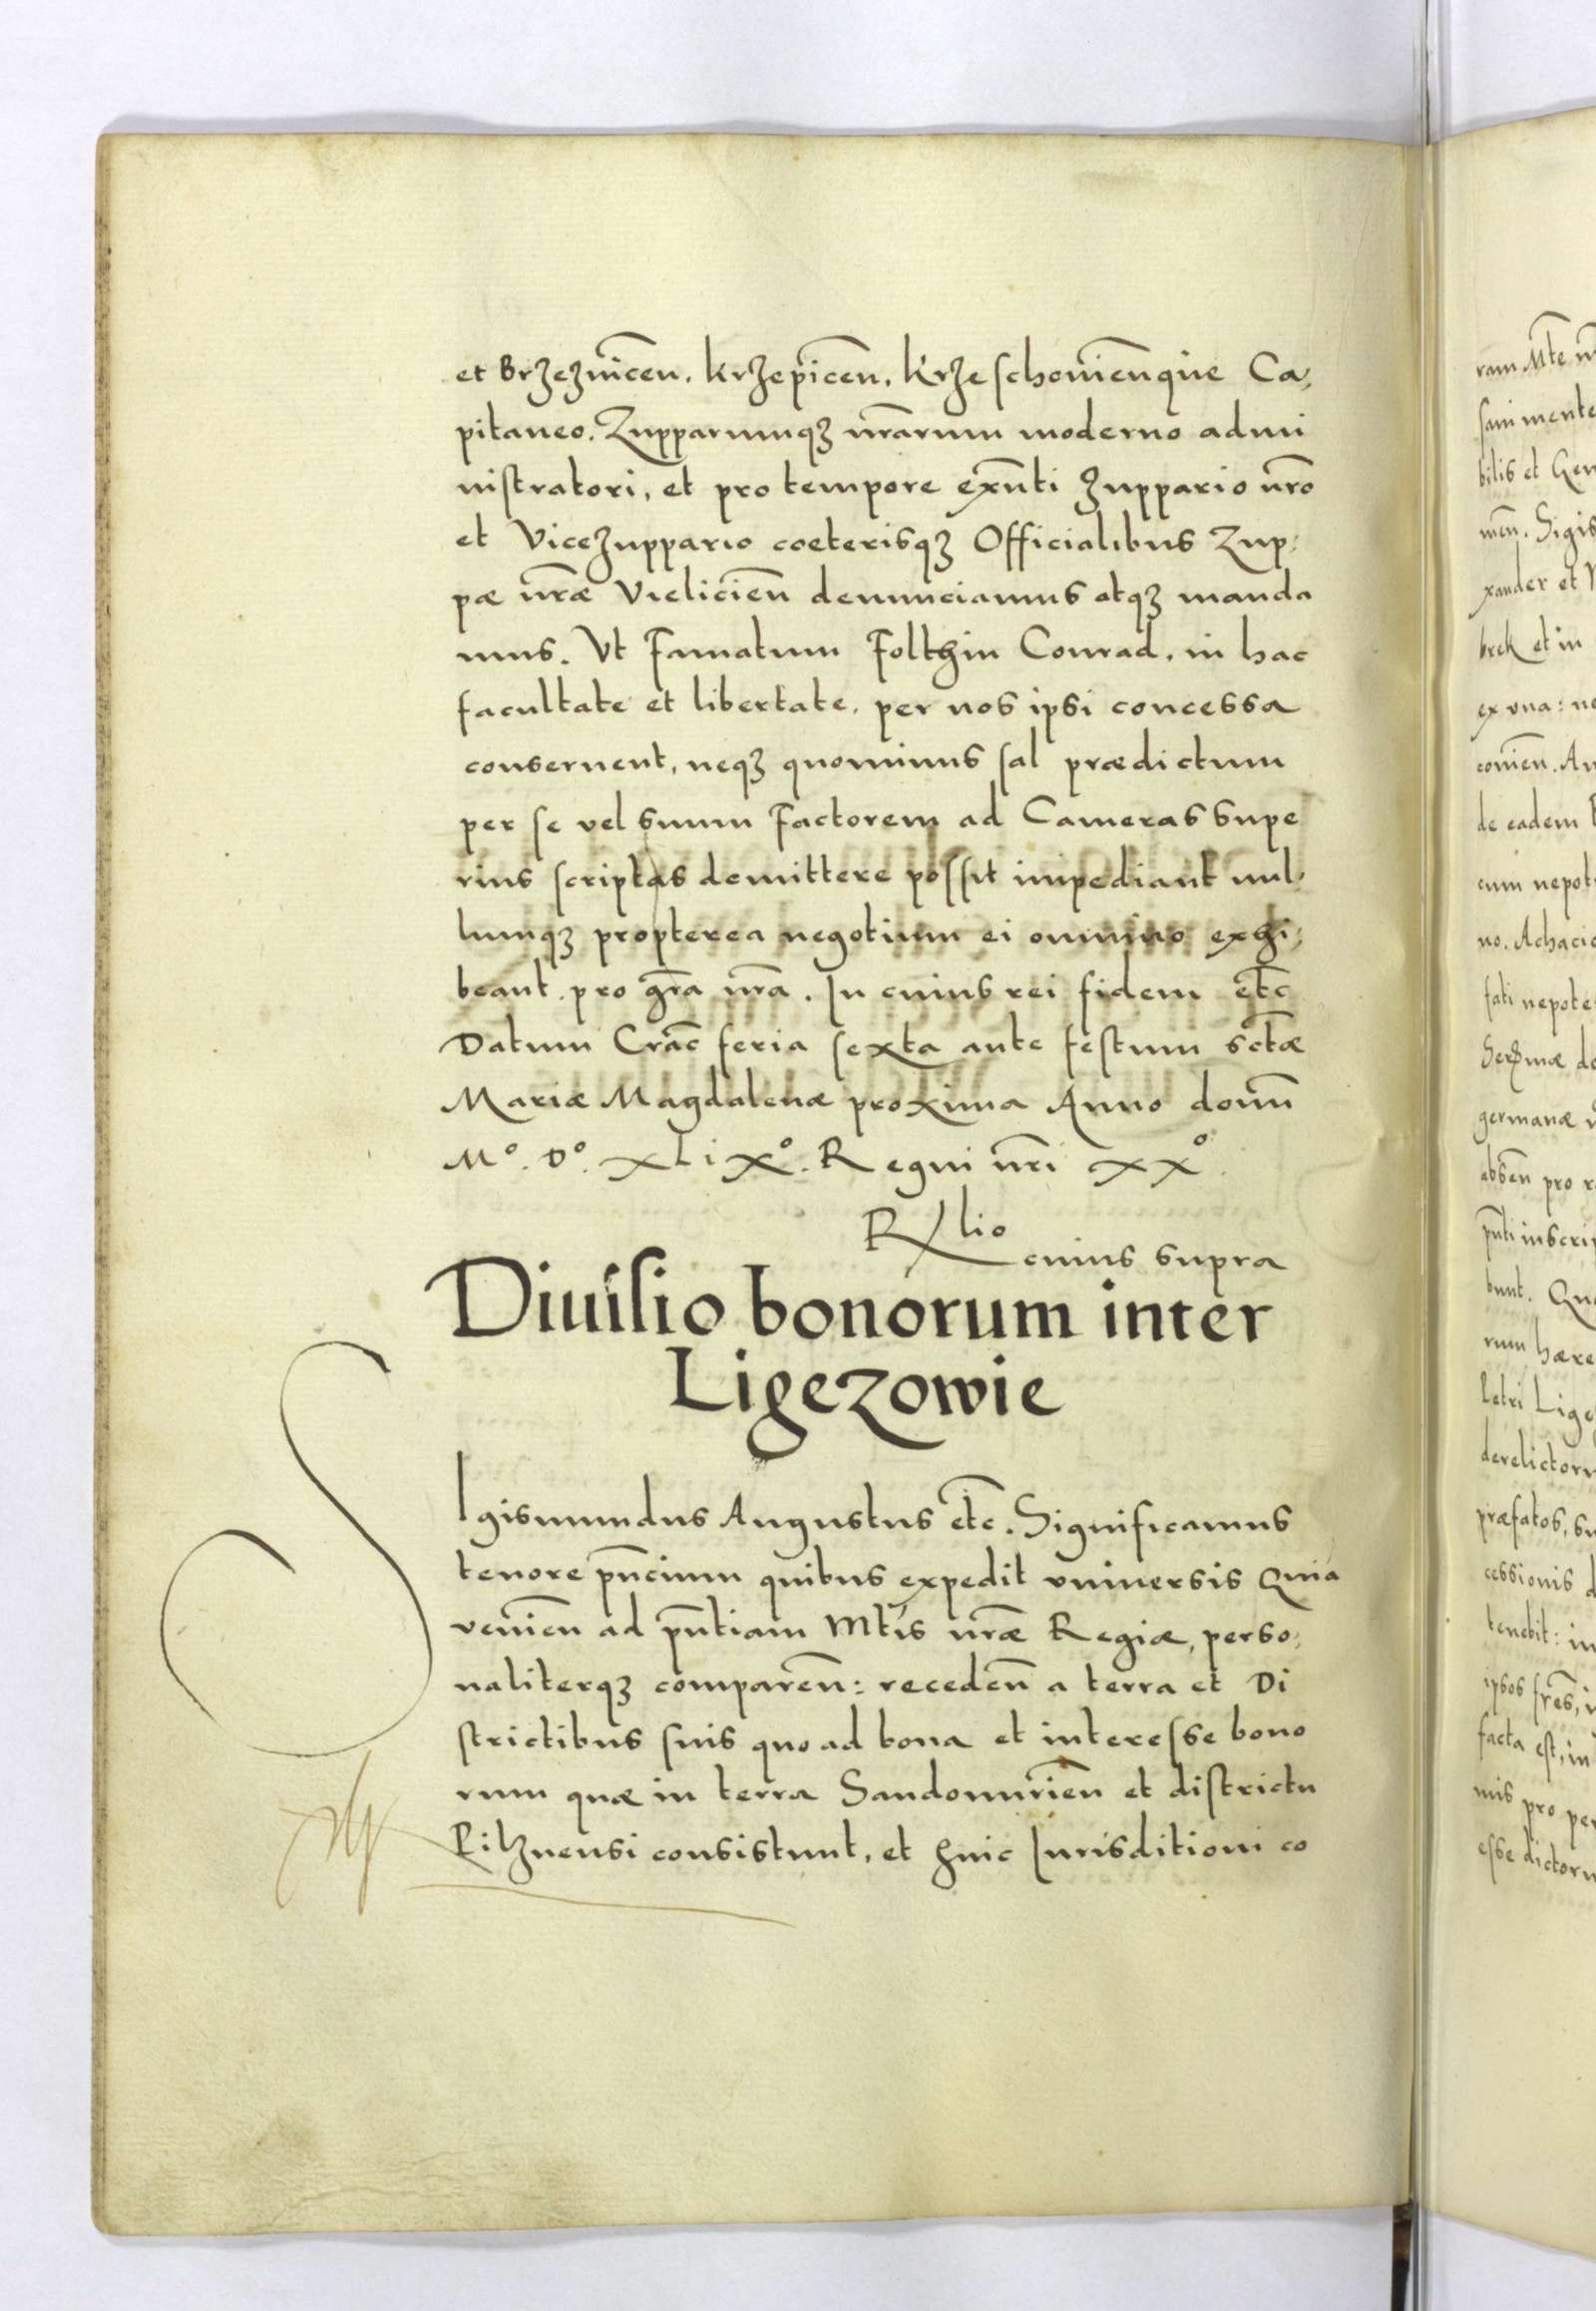 et Brzeznicen̄. Krzepicen̄. Krzeschovien̄que Ca,
pitaneo. Zupparumqȝ nr̄arum moderno admi
nistratori, et pro tempore exn̄ti Zuppario nr̄o
et Vicezuppario coeterisqȝ Officialibus Zup,
pæ nr̄æ Vielicien̄ denunciamus atqȝ manda
mus. Vt Famatum Folthin Conrad. in hac
facultate et libertate, per nos ipsi concessa
conservent, neqȝ quominus sal prædictum
per se vel suum Factorem ad Cameras supe
rius scriptas demittere possit impediant nul,
lumqȝ propterea negotium ei omnino exhi,
beant. pro gr̄a nr̄a. In cuius rei fidem etc̄
Datum Crac̄ feria sexta ante festum sctæ
Mariæ Magdalenæ proxima Anno domn̄
Mº. Dº. XLiXº. Regni nr̄i XXº.
Rlio
cuius supra
Diuisio bonorum inter
Ligezowie
SIgismundus Augustus etc̄. Significamus
tenore pn̄cium quibus expedit vniversis Quia
venien̄ ad pn̄tiam Mtis nr̄æ Regiæ, perso,
naliterqȝ comparen̄: receden̄ a terra et Di
strictibus suis quo ad bona et interesse bono
rum quæ in terra Sandomirien̄ et districtu
Pilznensi consistunt, et huic Iurisditioni co
ram Mte
sani mente
bilis et Gen
men̄. Sigis
xander et
brek et in
ex vna: ne
comen̄. An
de eadem
cum nepot
no. Achacio
fati nepote
germanæ
absen̄ pro
pn̄ti inscri
bunt. Qu
rum hære
Petri Lige
derelictor
præfatos, su
cessionis
tenebit: in
ipsos fr̄es, i
facta est, in
mis pro pe
esse dictoru